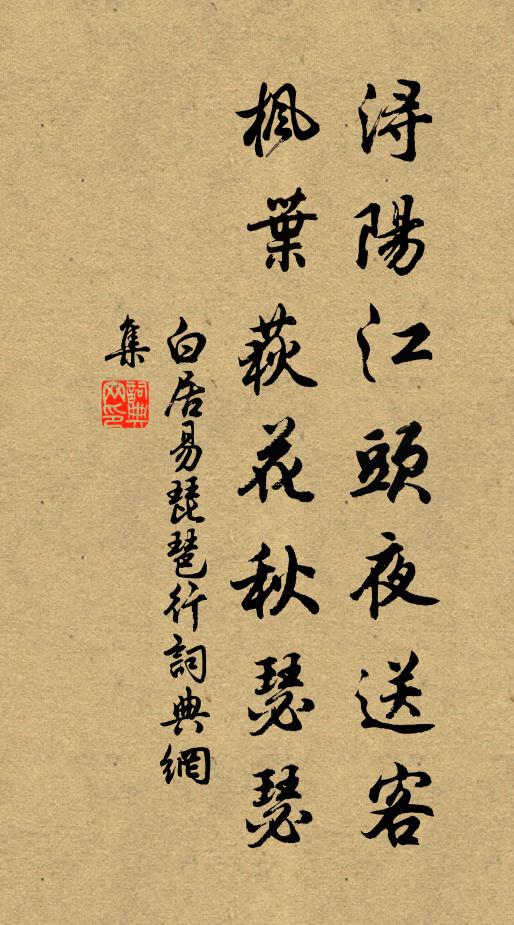 潯陽江頭夜送客
楓葉荻花秋瑟瑟
白居易琵琶行詞典網
集
詞典
网印